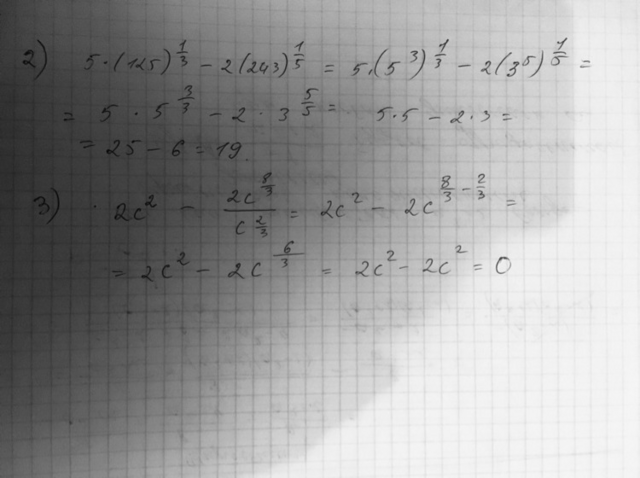 2) 5·(125)^{1/3} − 2(243)^{1/5} = 5·(5^3)^{1/3} − 2(3^5)^{1/5} =
= 5 · 5^{3/3} − 2 · 3^{5/5} = 5·5 − 2·3 =
= 25 − 6 = 19.
3) · 2c^2 − \frac{2c^{8/3}}{c^{2/3}} = 2c^2 − 2c^{8/3 − 2/3} =
= 2c^2 − 2c^{6/3} = 2c^2 − 2c^2 = 0